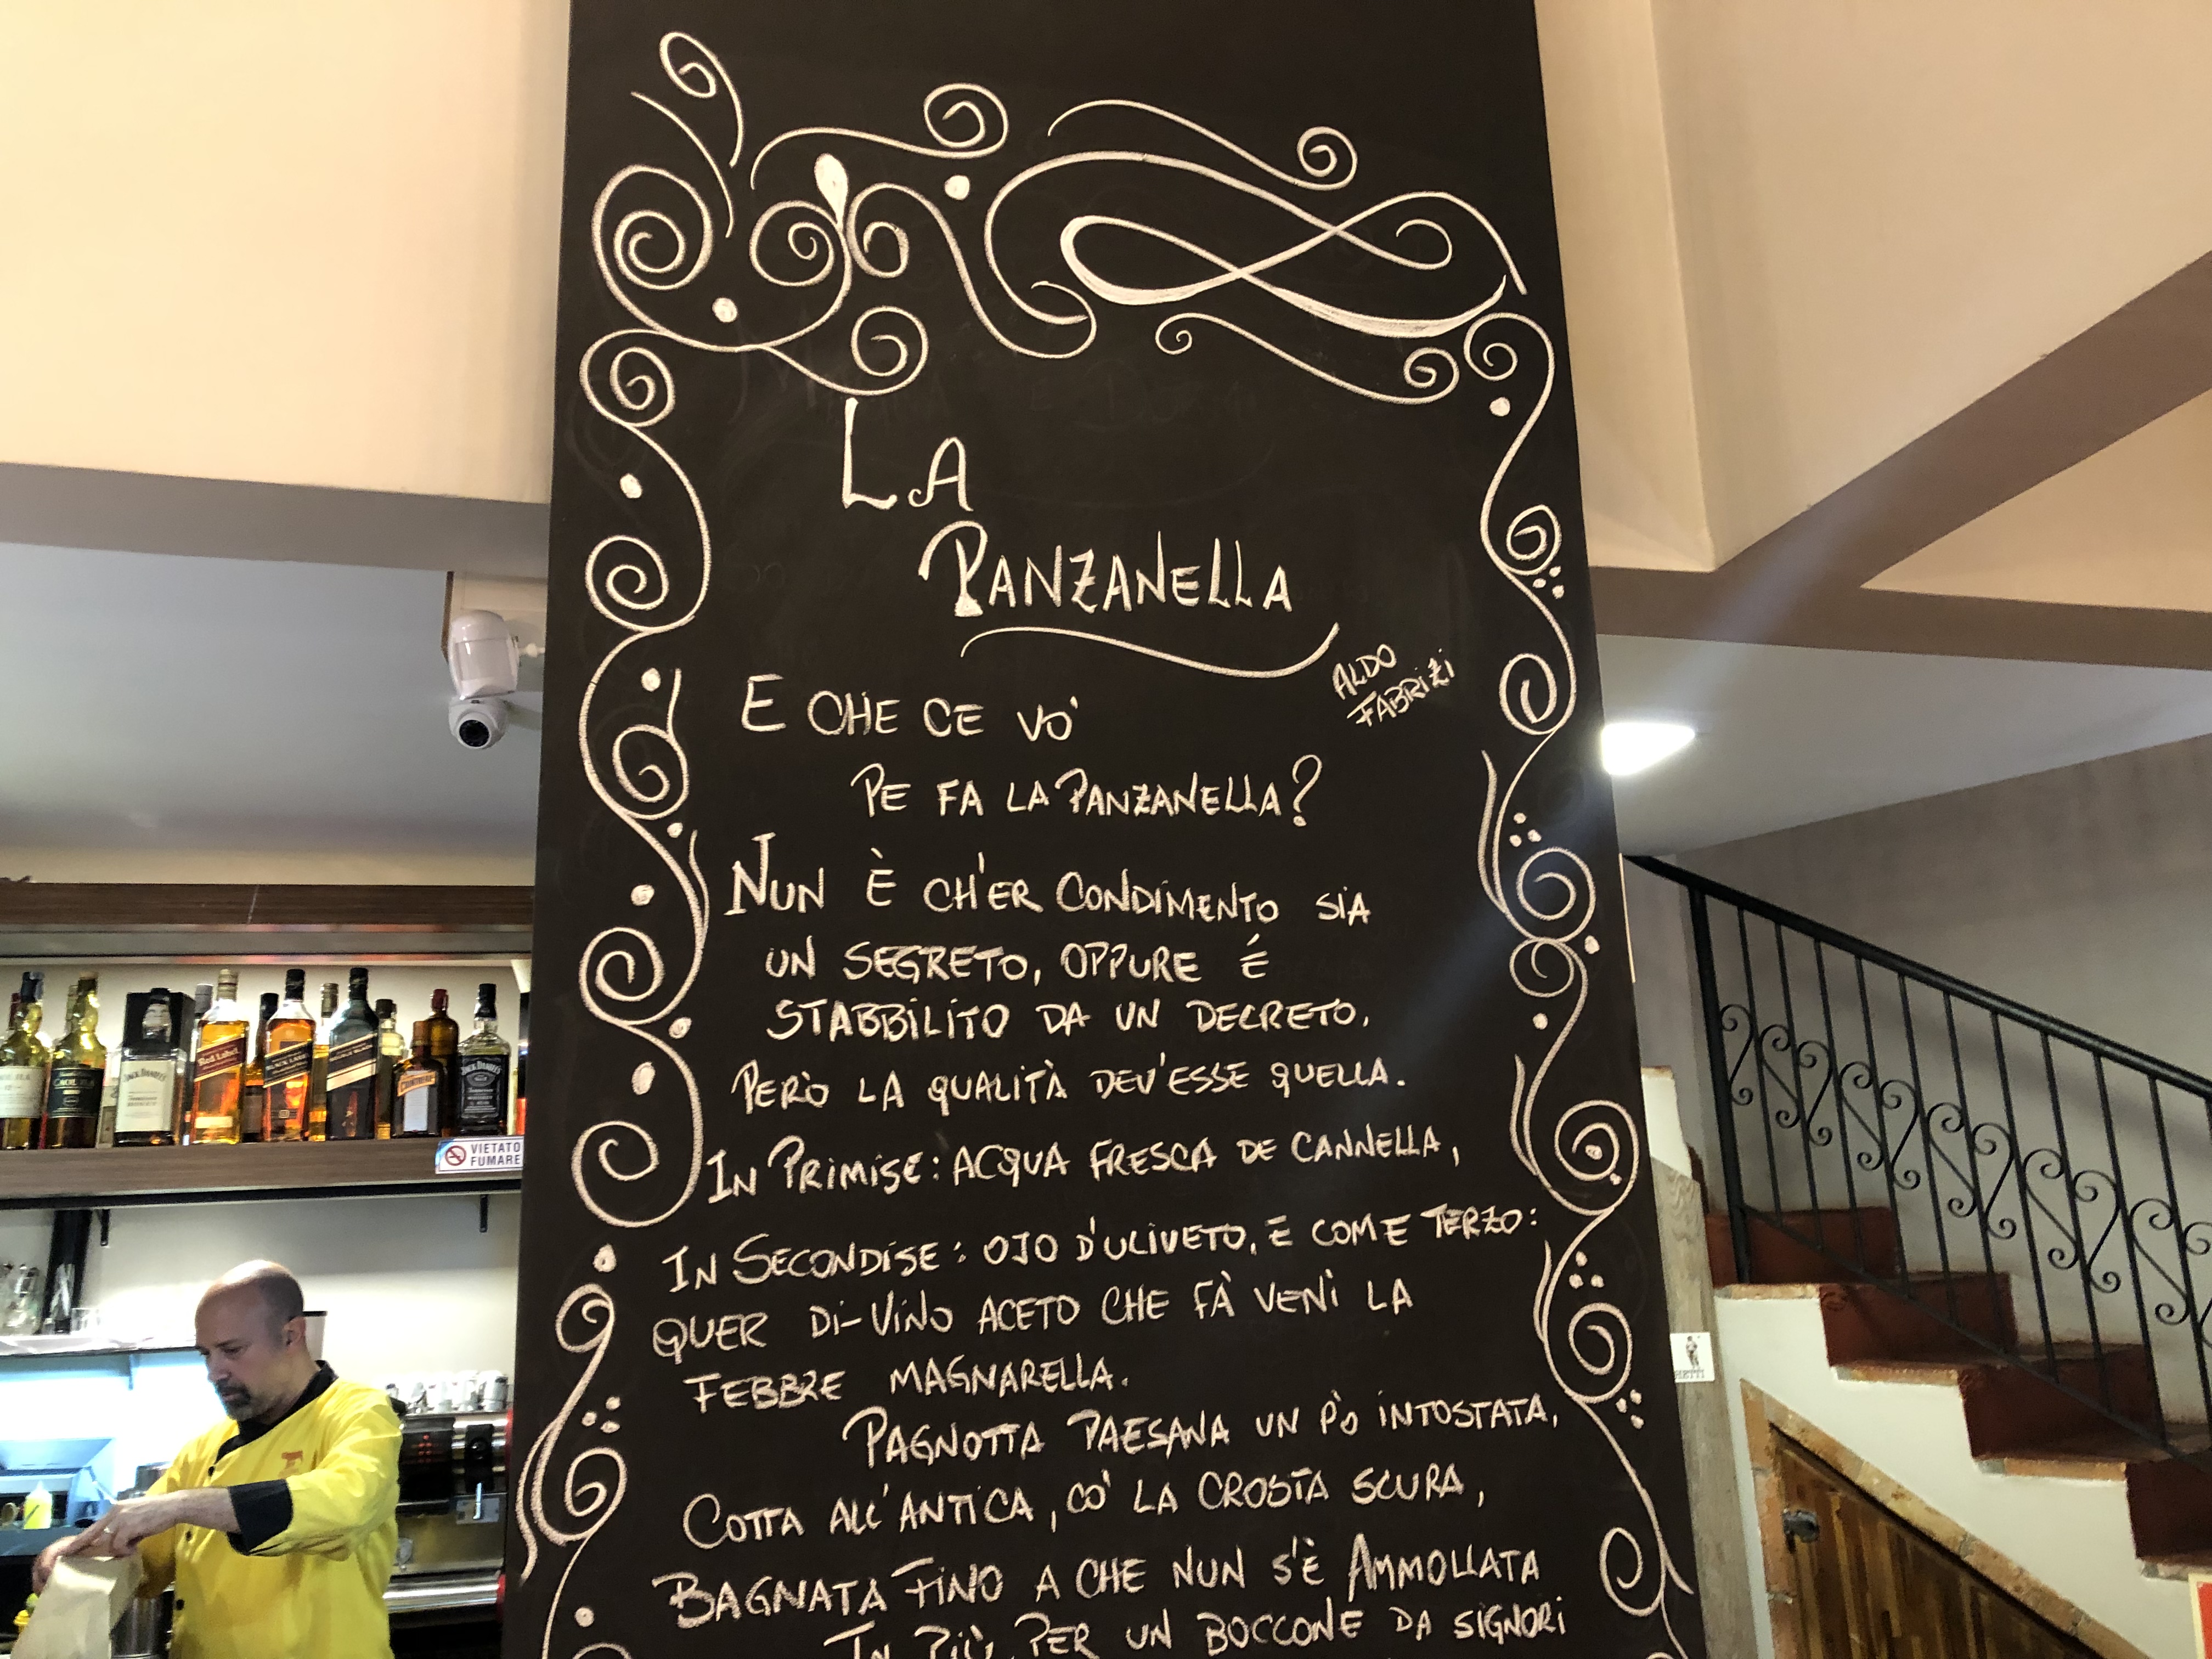 LA
PANZANELLA
ALDO
FABRIZI
E CHE CE VO'
PE FA LA PANZANELLA?
NUN È CH'ER CONDIMENTO SIA
UN SEGRETO, OPPURE É
STABBILITO DA UN DECRETO,
PERÒ LA QUALITÀ DEV'ESSE QUELLA.
IN PRIMISE: ACQUA FRESCA DE CANNELLA,
IN SECONDISE: OJO D'ULIVETO, E COME TERZO:
QUER DI-VINO ACETO CHE FÀ VENÌ LA
FEBBRE MAGNARELLA.
PAGNOTTA PAESANA UN PÒ INTOSTATA,
COTTA ALL'ANTICA, CO' LA CROSTA SCURA,
BAGNATA FINO A CHE NUN S'È AMMOLLATA
IN PIÙ, PER UN BOCCONE DA SIGNORI
VIETATO
FUMARE
CAOL ILA
JACK DANIEL'S
Red Label
BLACK LABEL
COINTREAU
JACK DANIEL'S